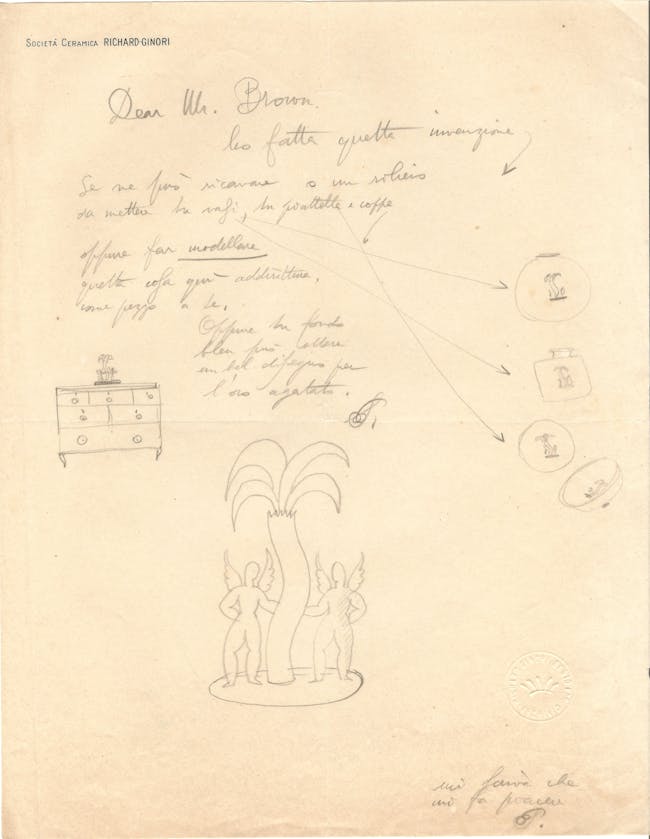 SOCIETÀ CERAMICA RICHARD-GINORI
Dear Mr. Brown.
ho fatta questa invenzione
Se ne può ricavare o un rilievo
da mettere su vasi, su piattelle e coppe
oppure far modellare
questa cosa qui addirittura,
come pezzo a se.
Oppure su fondo
bleu può essere
un bel disegno per
l'oro agatato.
mi
che
mi fa piacere